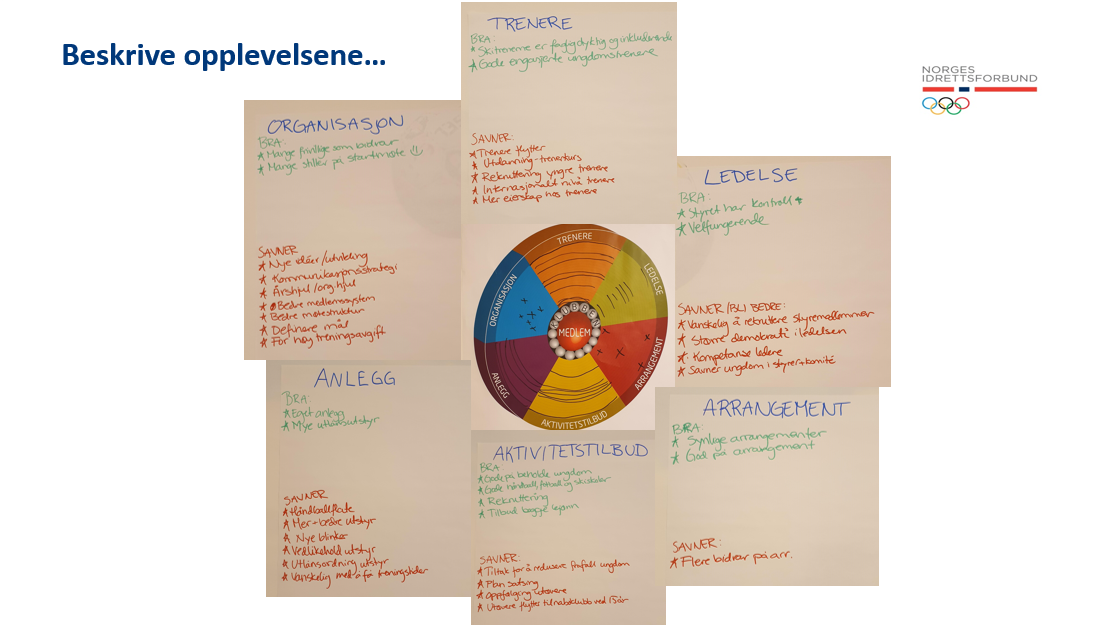 Beskrive opplevelsene...
NORGES
IDRETTSFORBUND
TRENERE
BRA:
* Skitrenerne er faglig dyktig og inkluderende
* Gode engasjerte ungdomstrenere
SAVNER:
* Trenere flytter
* Utdanning-trenerkurs
* Rekruttering yngre trenere
* Internasjonalt nivå trenere
* Mer eierskap hos trenere
ORGANISASJON
BRA:
* Mange frivillige som bidrar
* Mange stiller på startmiste
SAVNER
* Nye idéer/utvikling
* Kommunikasjonsstrategi
* Årshjul/org.hjul
* Bedre medlemssystem
* Bedre møtestruktur
* Definere mål
* For høy treningsavgift
LEDELSE
BRA:
* Styret har kontroll
* Velfungerende
SAVNER/BLI BEDRE:
* Vanskelig å rekruttere styremedlemmer
* Større demokrati i ledelsen
* Kompetanse ledere
* Savner ungdom i styrer+komité
TRENERE
LEDELSE
ORGANISASJON
KLUBBEN
MEDLEM
ARRANGEMENT
ANLEGG
AKTIVITETSTILBUD
ANLEGG
BRA:
* Eget anlegg
* Mye utlånsutstyr
SAVNER
* Håndballflate
* Mer+bedre utstyr
* Nye blinker
* Vedlikehold utstyr
* Utlånsordning utstyr
* Vanskelig med å få treningstider
AKTIVITETSTILBUD
BRA:
* Gode på beholde ungdom
* Gode håndball, fotball og skiskoler
* Rekruttering
* Tilbud begge kjønn
SAVNER:
* Tiltak for å redusere frafall ungdom
* Plan satsing
* Oppfølging utøvere
* Utøvere flytter til naboklubb ved 15år
ARRANGEMENT
BRA:
* Synlige arrangementer
* God på arrangement
SAVNER:
* Flere bidrar på arr.